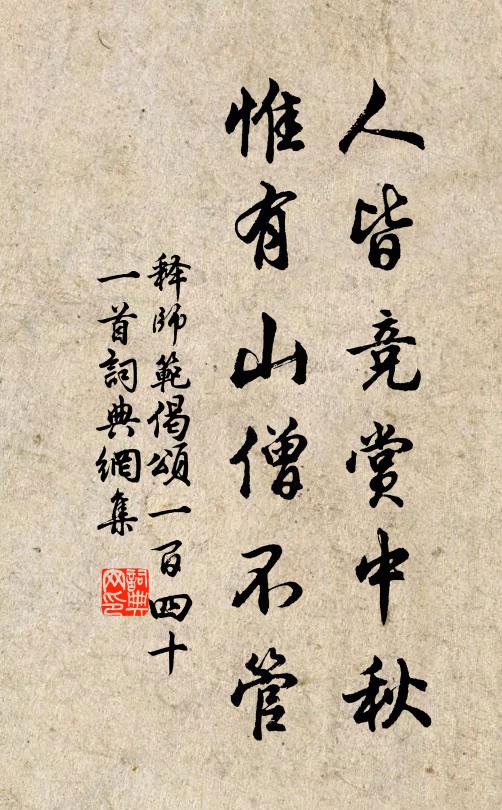 人皆竞赏中秋
惟有山僧不管
释師範偈頌一百四十
一首詞典網集
詞典網印